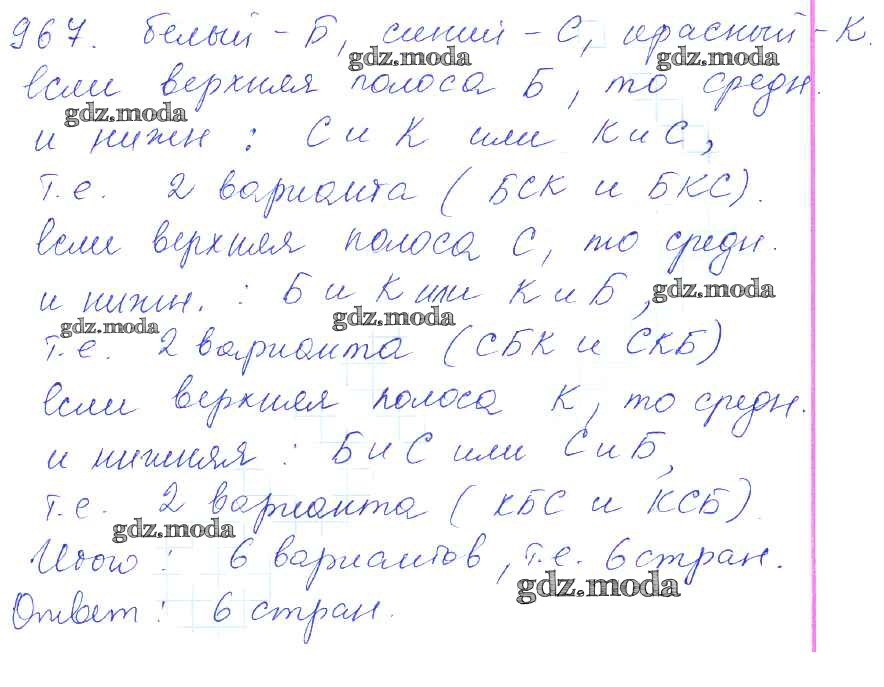 967. белый - Б, синий - С, красный - К.
gdz.moda gdz.moda
если верхняя полоса Б, то средн.
gdz.moda
и нижн : С и К или К и С,
т.е. 2 варианта ( БСК и БКС).
если верхняя полоса С, то средн.
и нижн. : Б и К или К и Б, gdz.moda
gdz.moda gdz.moda
т.е. 2 варианта (СБК и СКБ)
если верхняя полоса К, то средн.
и нижняя : Б и С или С и Б,
т.е. 2 варианта ( КБС и КСБ).
gdz.moda
Итого : 6 вариантов, т.е. 6 стран.
gdz.moda
Ответ : 6 стран.